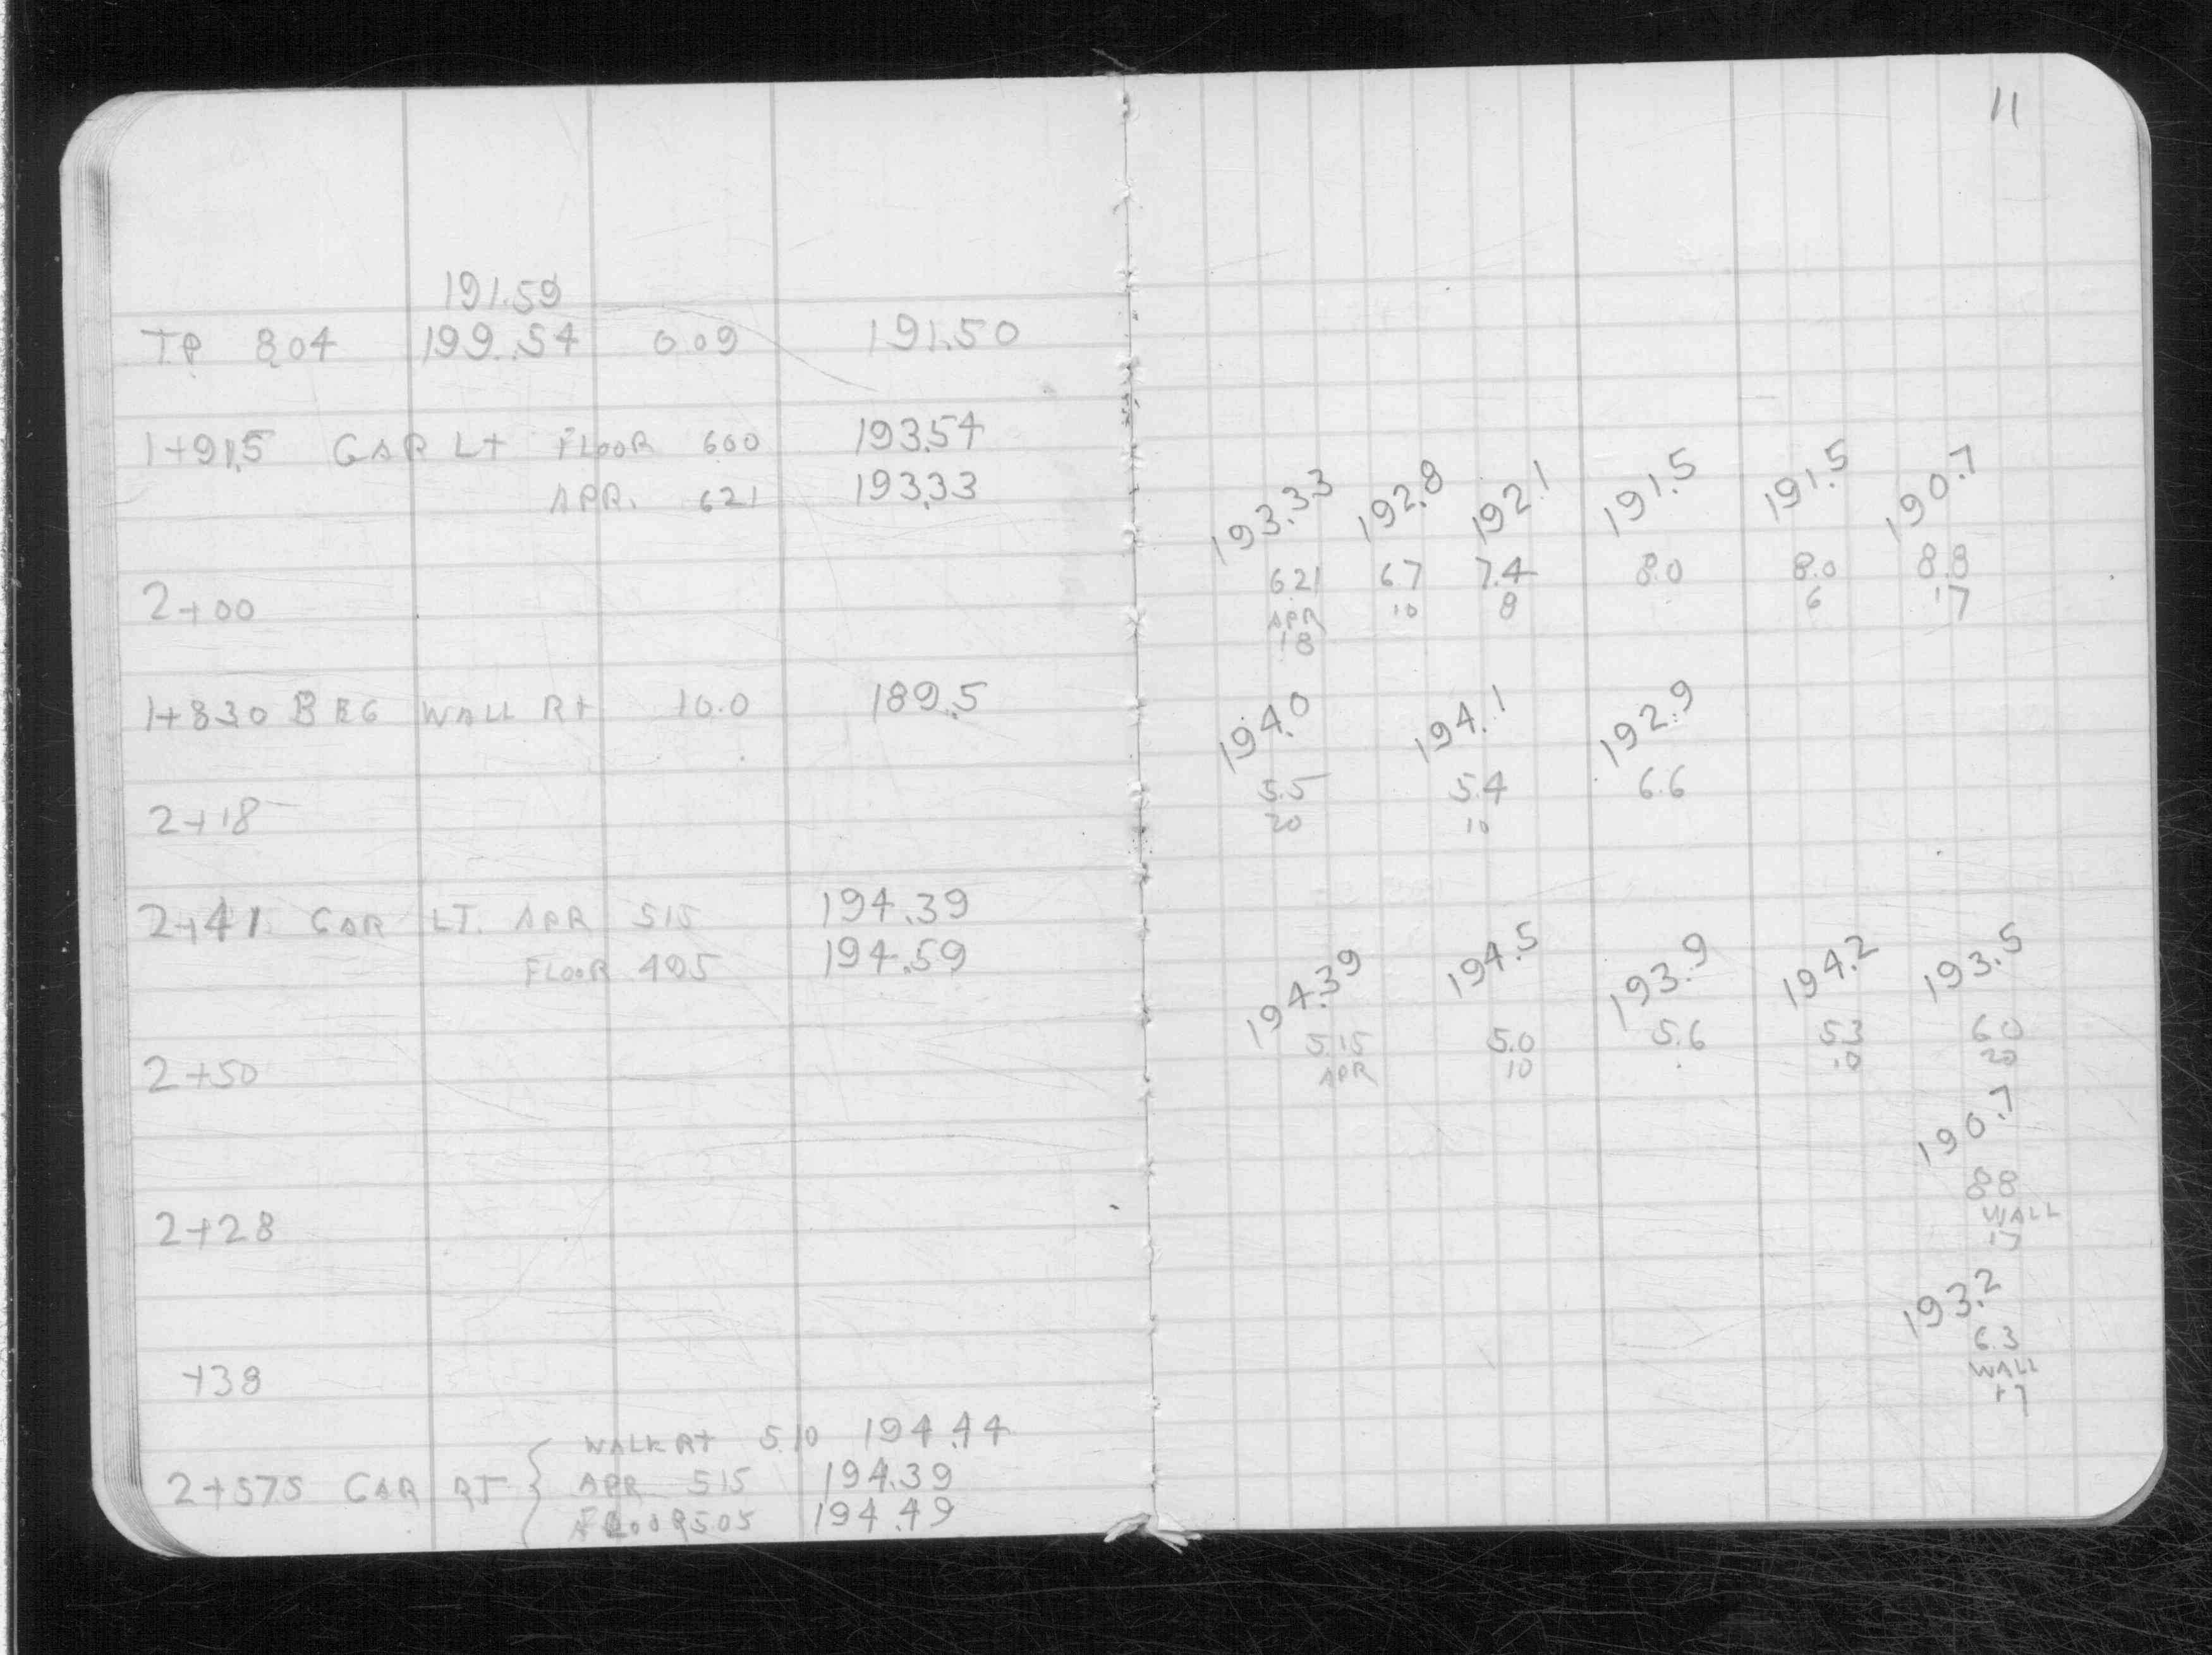 11
191.59
TP 8.04 199.54 0.09 191.50
1+91.5 GAR Lt FLOOR 600 193.54
APR. 621 193.33
193.33 192.8 192.1 191.5 191.5 190.7
2+00 621 6.7 7.4 8.0 8.0 8.8
APR 10 8 6 17
18
1+830 BEG WALL Rt 10.0 189.5
194.0 194.1 192.9
2+18 5.5 5.4 6.6
20 10
2+41 GAR LT. APR 515 194.39
FLOOR 495 194.59
194.39 194.5 193.9 194.2 193.5
2+50 5.15 5.0 5.6 5.3 6.0
APR 10 10 20
190.7
2+28 88
WALL
17
193.2
+38 6.3
WALL
17
WALK Rt 5.10 194.44
2+575 GAR RT { APR 515 194.39
FLOOR 505 194.49